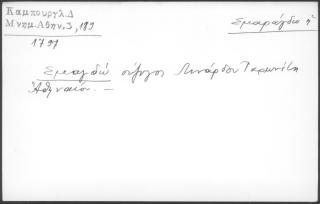 Καμπουργλ.Δ
Μνημ.Αθην.3,189
Σμαράγδω ἡ
1791
Σμαγδώ σύζυγος Λινάρδου Γερωνίτη
Ἀθηναίου. —